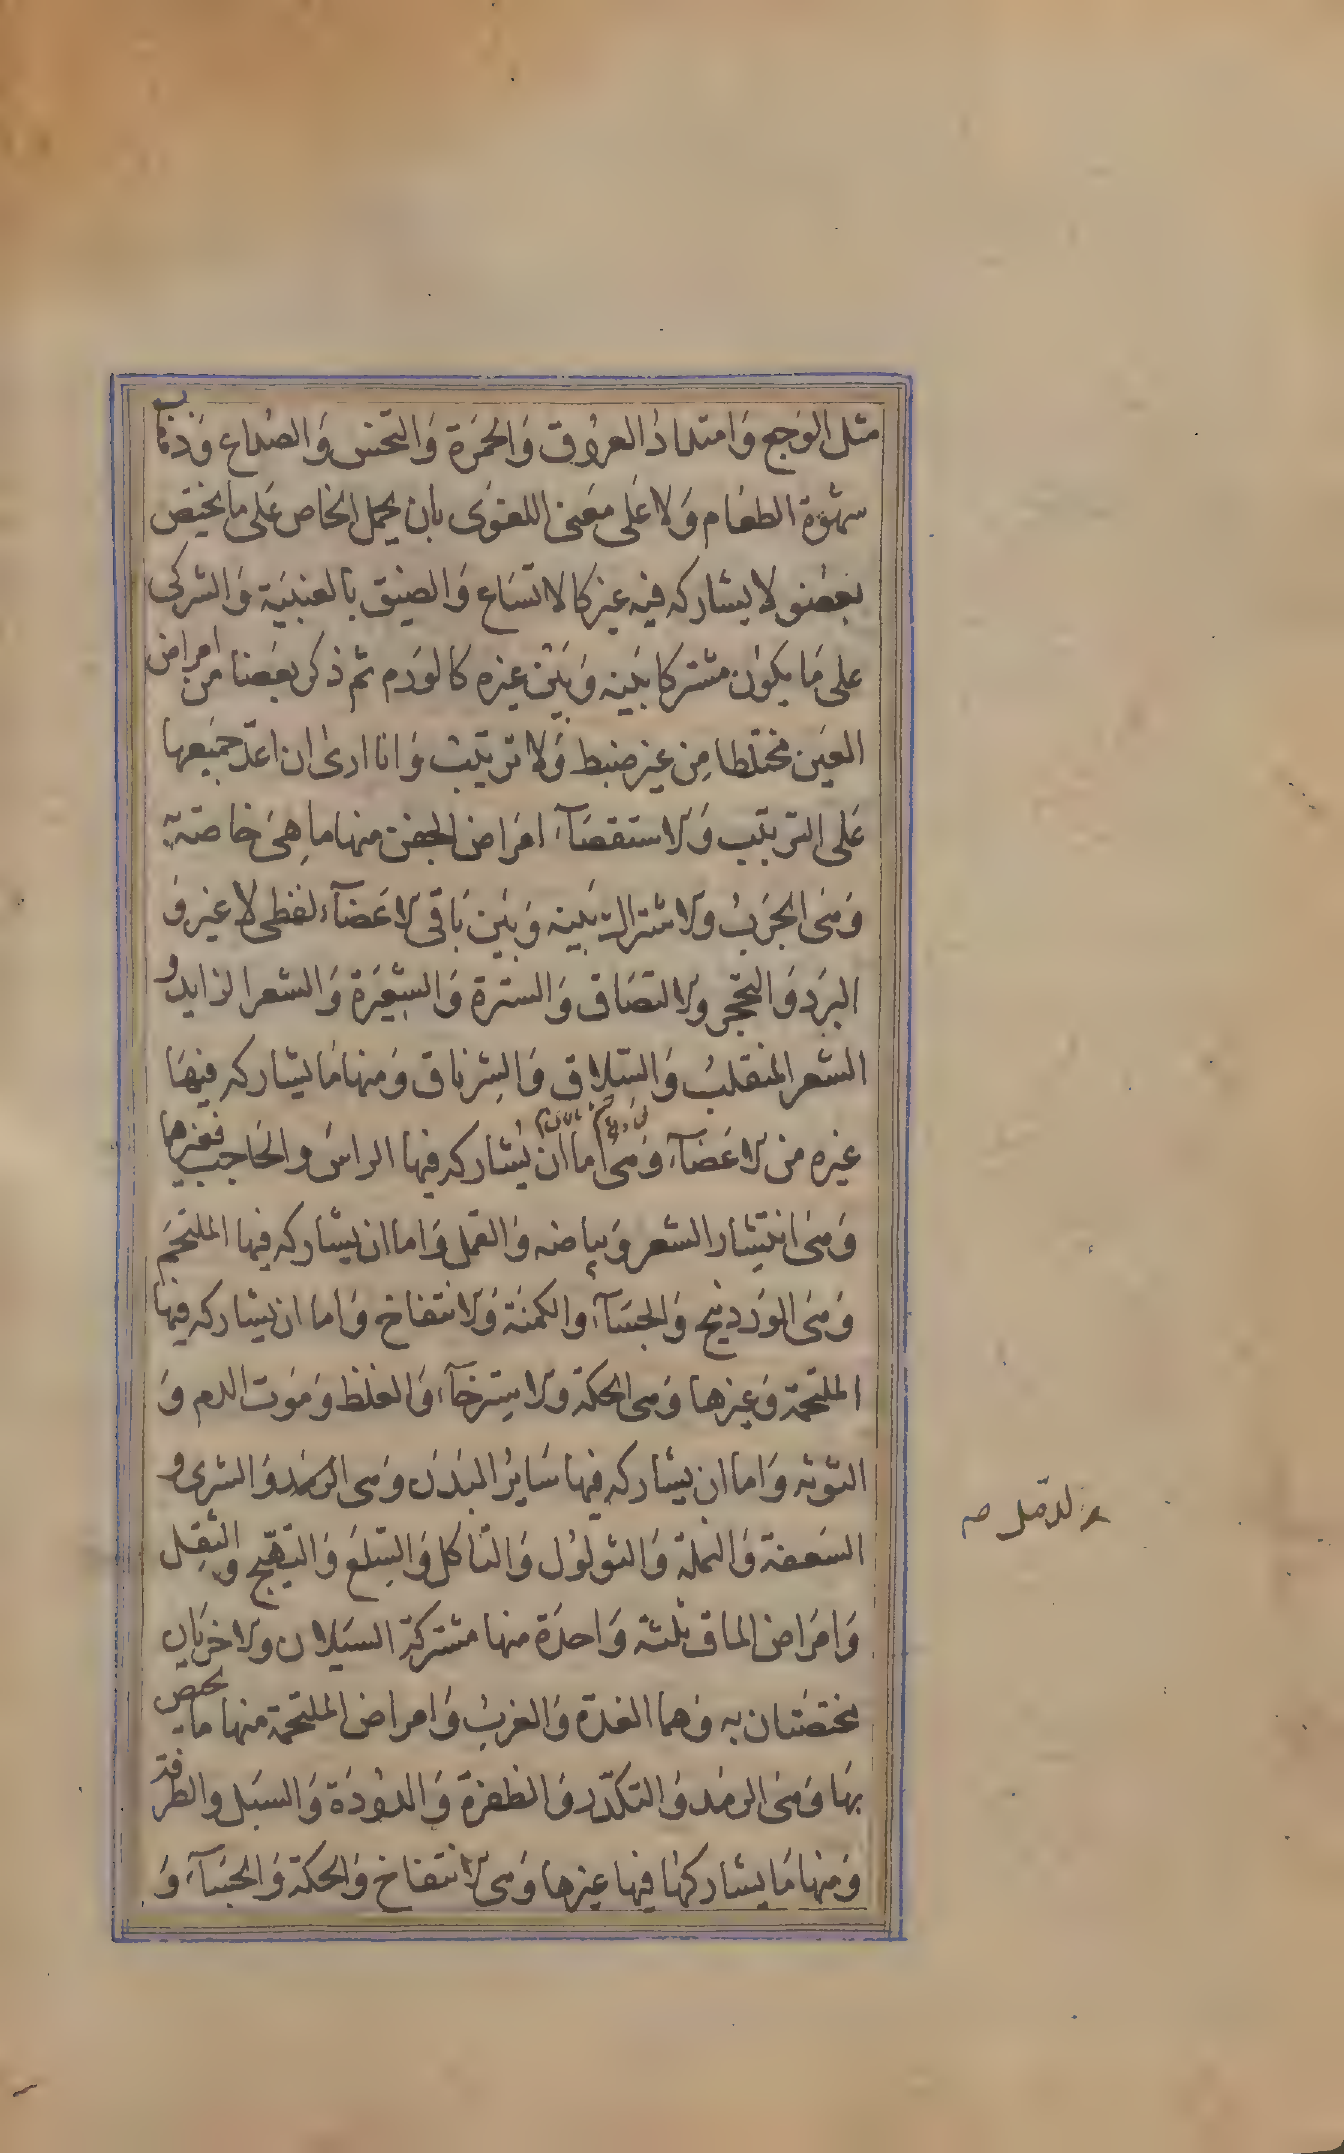 مثل الوجع وامتداد العروق والحمرة والنخس والصداع وذهاب
شهوة الطعام ولا على معنى اللغوى بان يحمل الخاص على ما يختص
بعضو لا يشاركه فيه غيره كالاتساع والضيق بالعنبية والشركى
على ما يكون مشتركا بينه وبين غيره كالورم ثم ذكر بعضا من امراض
العين مختلطا من غير ضبط ولا ترتيب وانا ارى ان اعد جميعها
على الترتيب والاستقصآء امراض الجفن منها ما هى خاصة به
وهى الجرب والاشتراك بينه وبين باقى الاعضآء لفظى لا غير و
البرد والتحجر والالتصاق والشترة والشعيرة والشعر الزايد و
الشعر المنقلب والسلاق والشرناق ومنها ما يشاركه فيها
غيره من الاعضآء وهى اما ان يشاركه فيها الراس والحاجب فغيرهما
وهى انتشار الشعر وبياضه والقمل واما ان يشاركه فيها الملتحم
وهى الوردينج والجسآء والكمنة والانتفاخ واما ان يشاركه فيها
الملتحمة وغيرها وهى الحكة والاسترخآء والغلظ وموت الدم و
التوثه واما ان يشاركه فيها ساير البدن وهى الرمد والشرى و
السعفة والنملة والثولول والتاكل والسلع والتهيج والثقل
وامراض الماق ثلثة واحدة منها مشتركة السيلان والاخريان
يختصتان به وهما الغدة والغرب وامراض الملتحمة منها ما يختص
بها وهى الرمد والتكدر والظفرة والدودة والسبل والطرفة
ومنها ما يشاركها فيها غيرها وهى الانتفاخ والحكة والجسآء و
والدمل صه